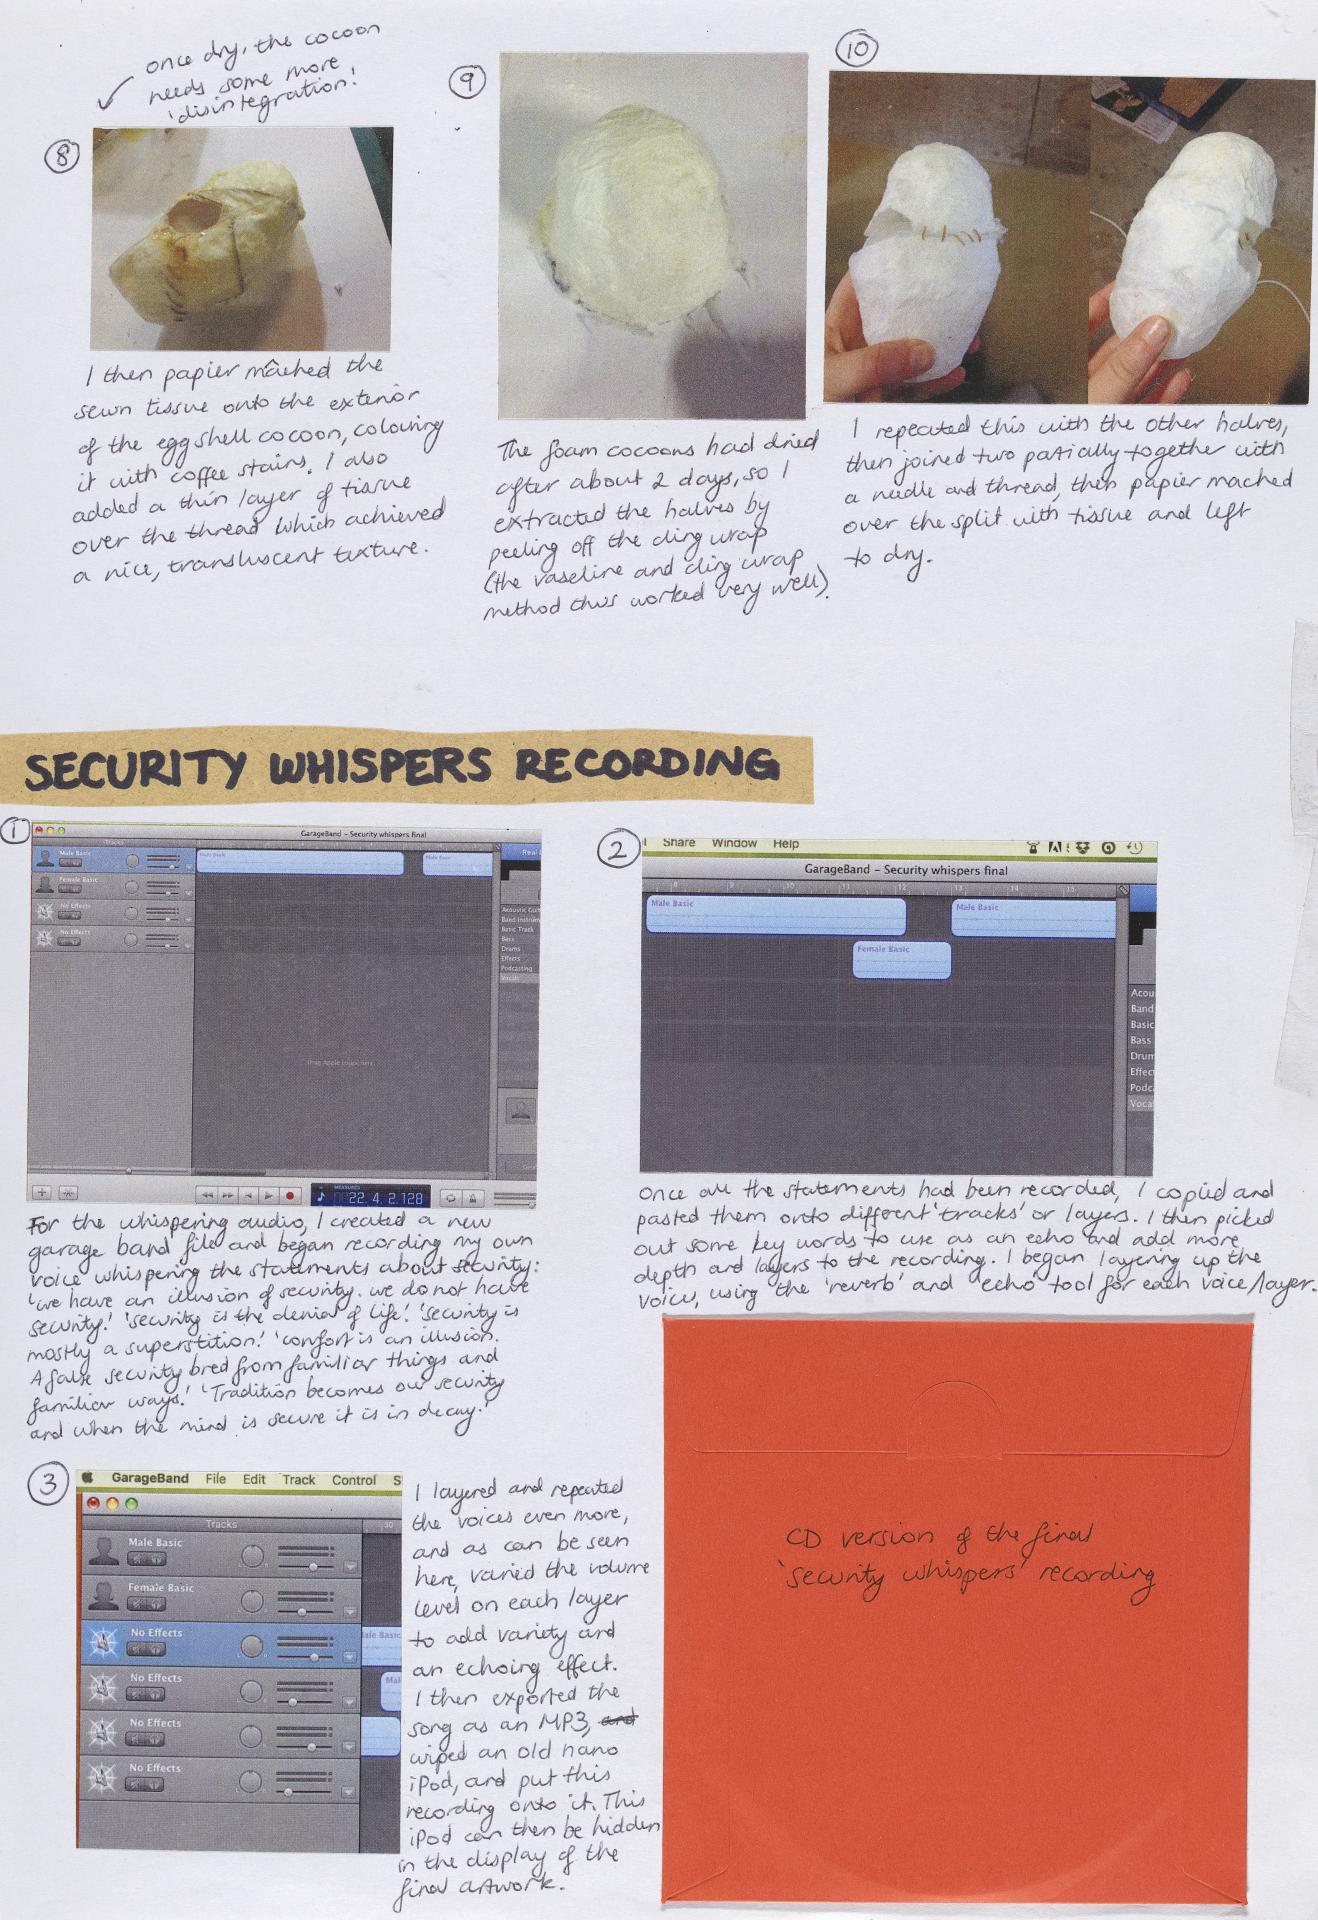 once dry, the cocoon
needs some more
'disintegration!
8
I then papier mâched the
sewn tissue onto the exterior
of the eggshell cocoon, colouring
it with coffee stains. I also
added a thin layer of tissue
over the thread which achieved
a nice, translucent texture.
9
The foam cocoons had dried
after about 2 days, so I
extracted the halves by
peeling off the cling wrap
(the vaseline and cling wrap
method thus worked very well).
10
I repeated this with the other halves,
then joined two partially together with
a needle and thread, then papier mached
over the split with tissue and left
to dry.
SECURITY WHISPERS RECORDING
1
GarageBand - Security whispers final
Tracks
Male Basic
Female Basic
No Effects
No Effects
Male Basic
Male Basic
Real
Acoustic Guit
Band Instrum
Basic Track
Bass
Drums
Effects
Podcasting
Vocals
Drag Apple Loops here.
MEASURES
22. 4. 2. 128
For the whispering audio, I created a new
garage band file and began recording my own
voice whispering the statements about security:
'we have an illusion of security. we do not have
security.' 'security is the denial of life.' 'security is
mostly a superstition.' 'comfort is an illusion.
A false security bred from familiar things and
familiar ways.' 'Tradition becomes our security
and when the mind is secure it is in decay.'
2
Share Window Help
GarageBand - Security whispers final
8 9 10 11 12 13 14 15
Male Basic
Male Basic
Female Basic
Acou
Band
Basic
Bass
Drum
Effec
Podc
Voca
Once all the statements had been recorded, I copied and
pasted them onto different 'tracks' or layers. I then picked
out some key words to use as an echo and add more
depth and layers to the recording. I began layering up the
voices, using the 'reverb' and 'echo' tool for each voice/layer.
3
GarageBand File Edit Track Control S
Tracks
30
Male Basic
Female Basic
No Effects
ale Basic
No Effects
Mal
No Effects
No Effects
I layered and repeated
the voices even more,
and as can be seen
here, varied the volume
level on each layer
to add variety and
an echoing effect.
I then exported the
song as an MP3, and
wiped an old nano
iPod, and put this
recording onto it. This
iPod can then be hidden
in the display of the
final artwork.
CD version of the final
'security whispers' recording